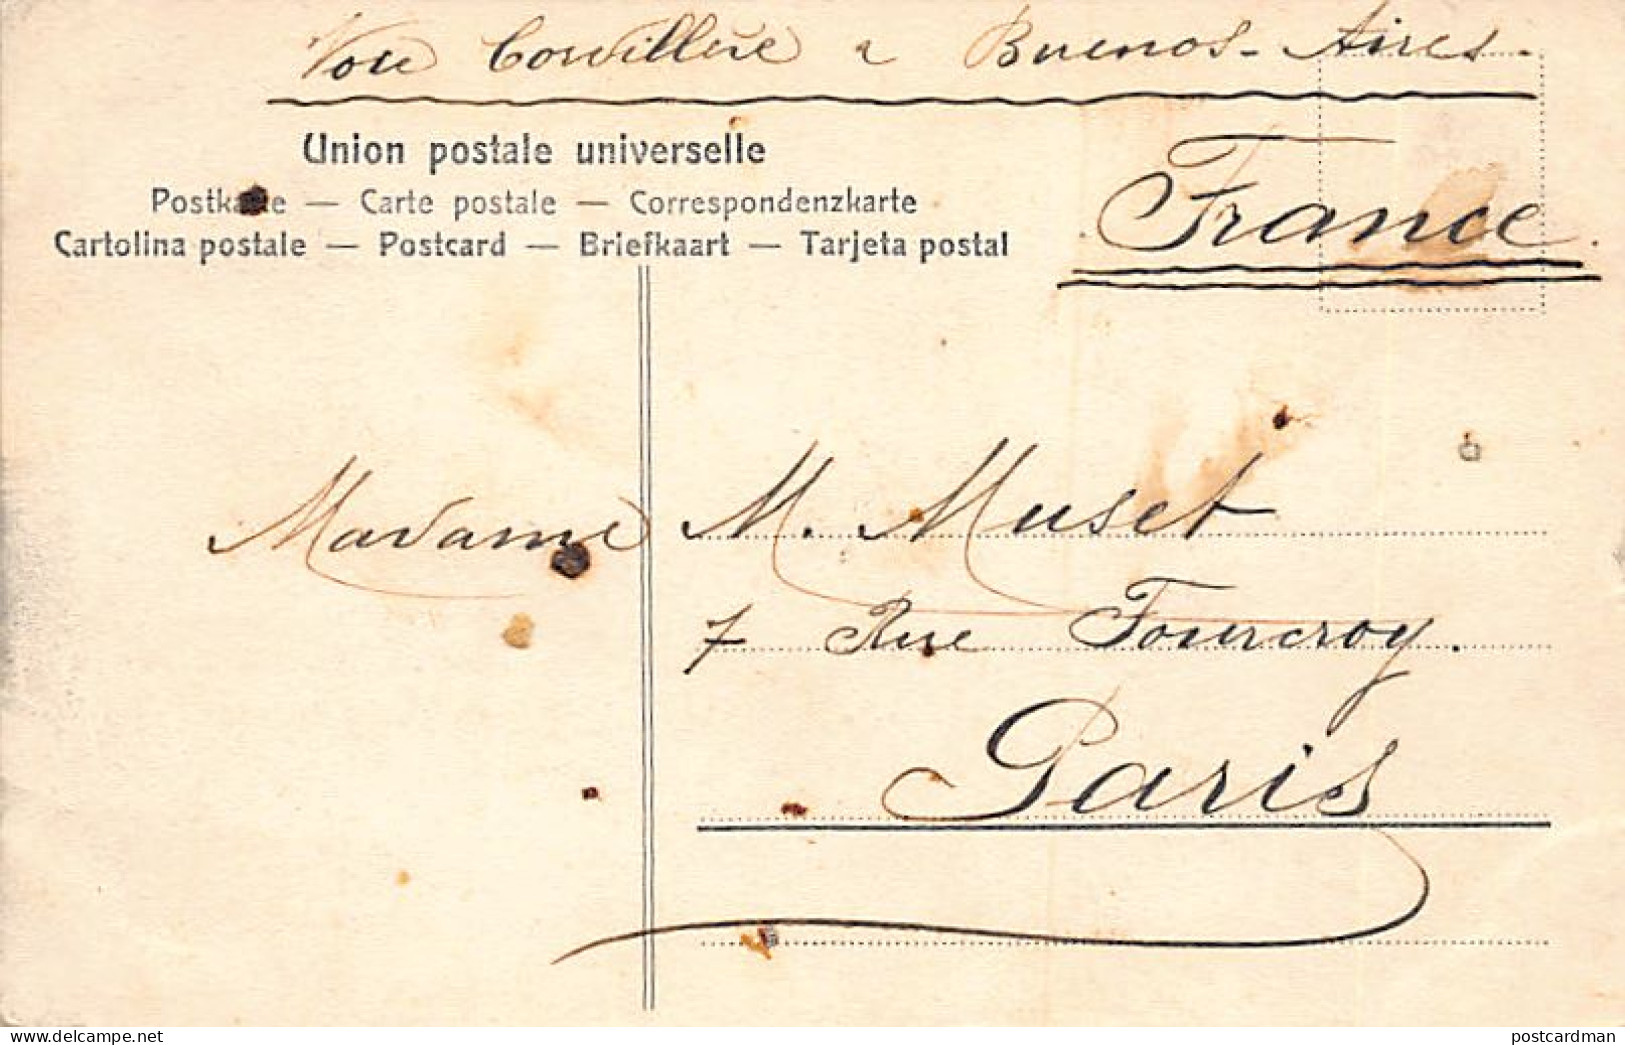 Voie Cordillère a Buenos-Aires.
Union postale universelle
Postkarte — Carte postale — Correspondenzkarte
Cartolina postale — Postcard — Briefkaart — Tarjeta postal
France.
Madame M. Muset
7 Rue Fourcroy.
Paris
delcampe.net
postcardman